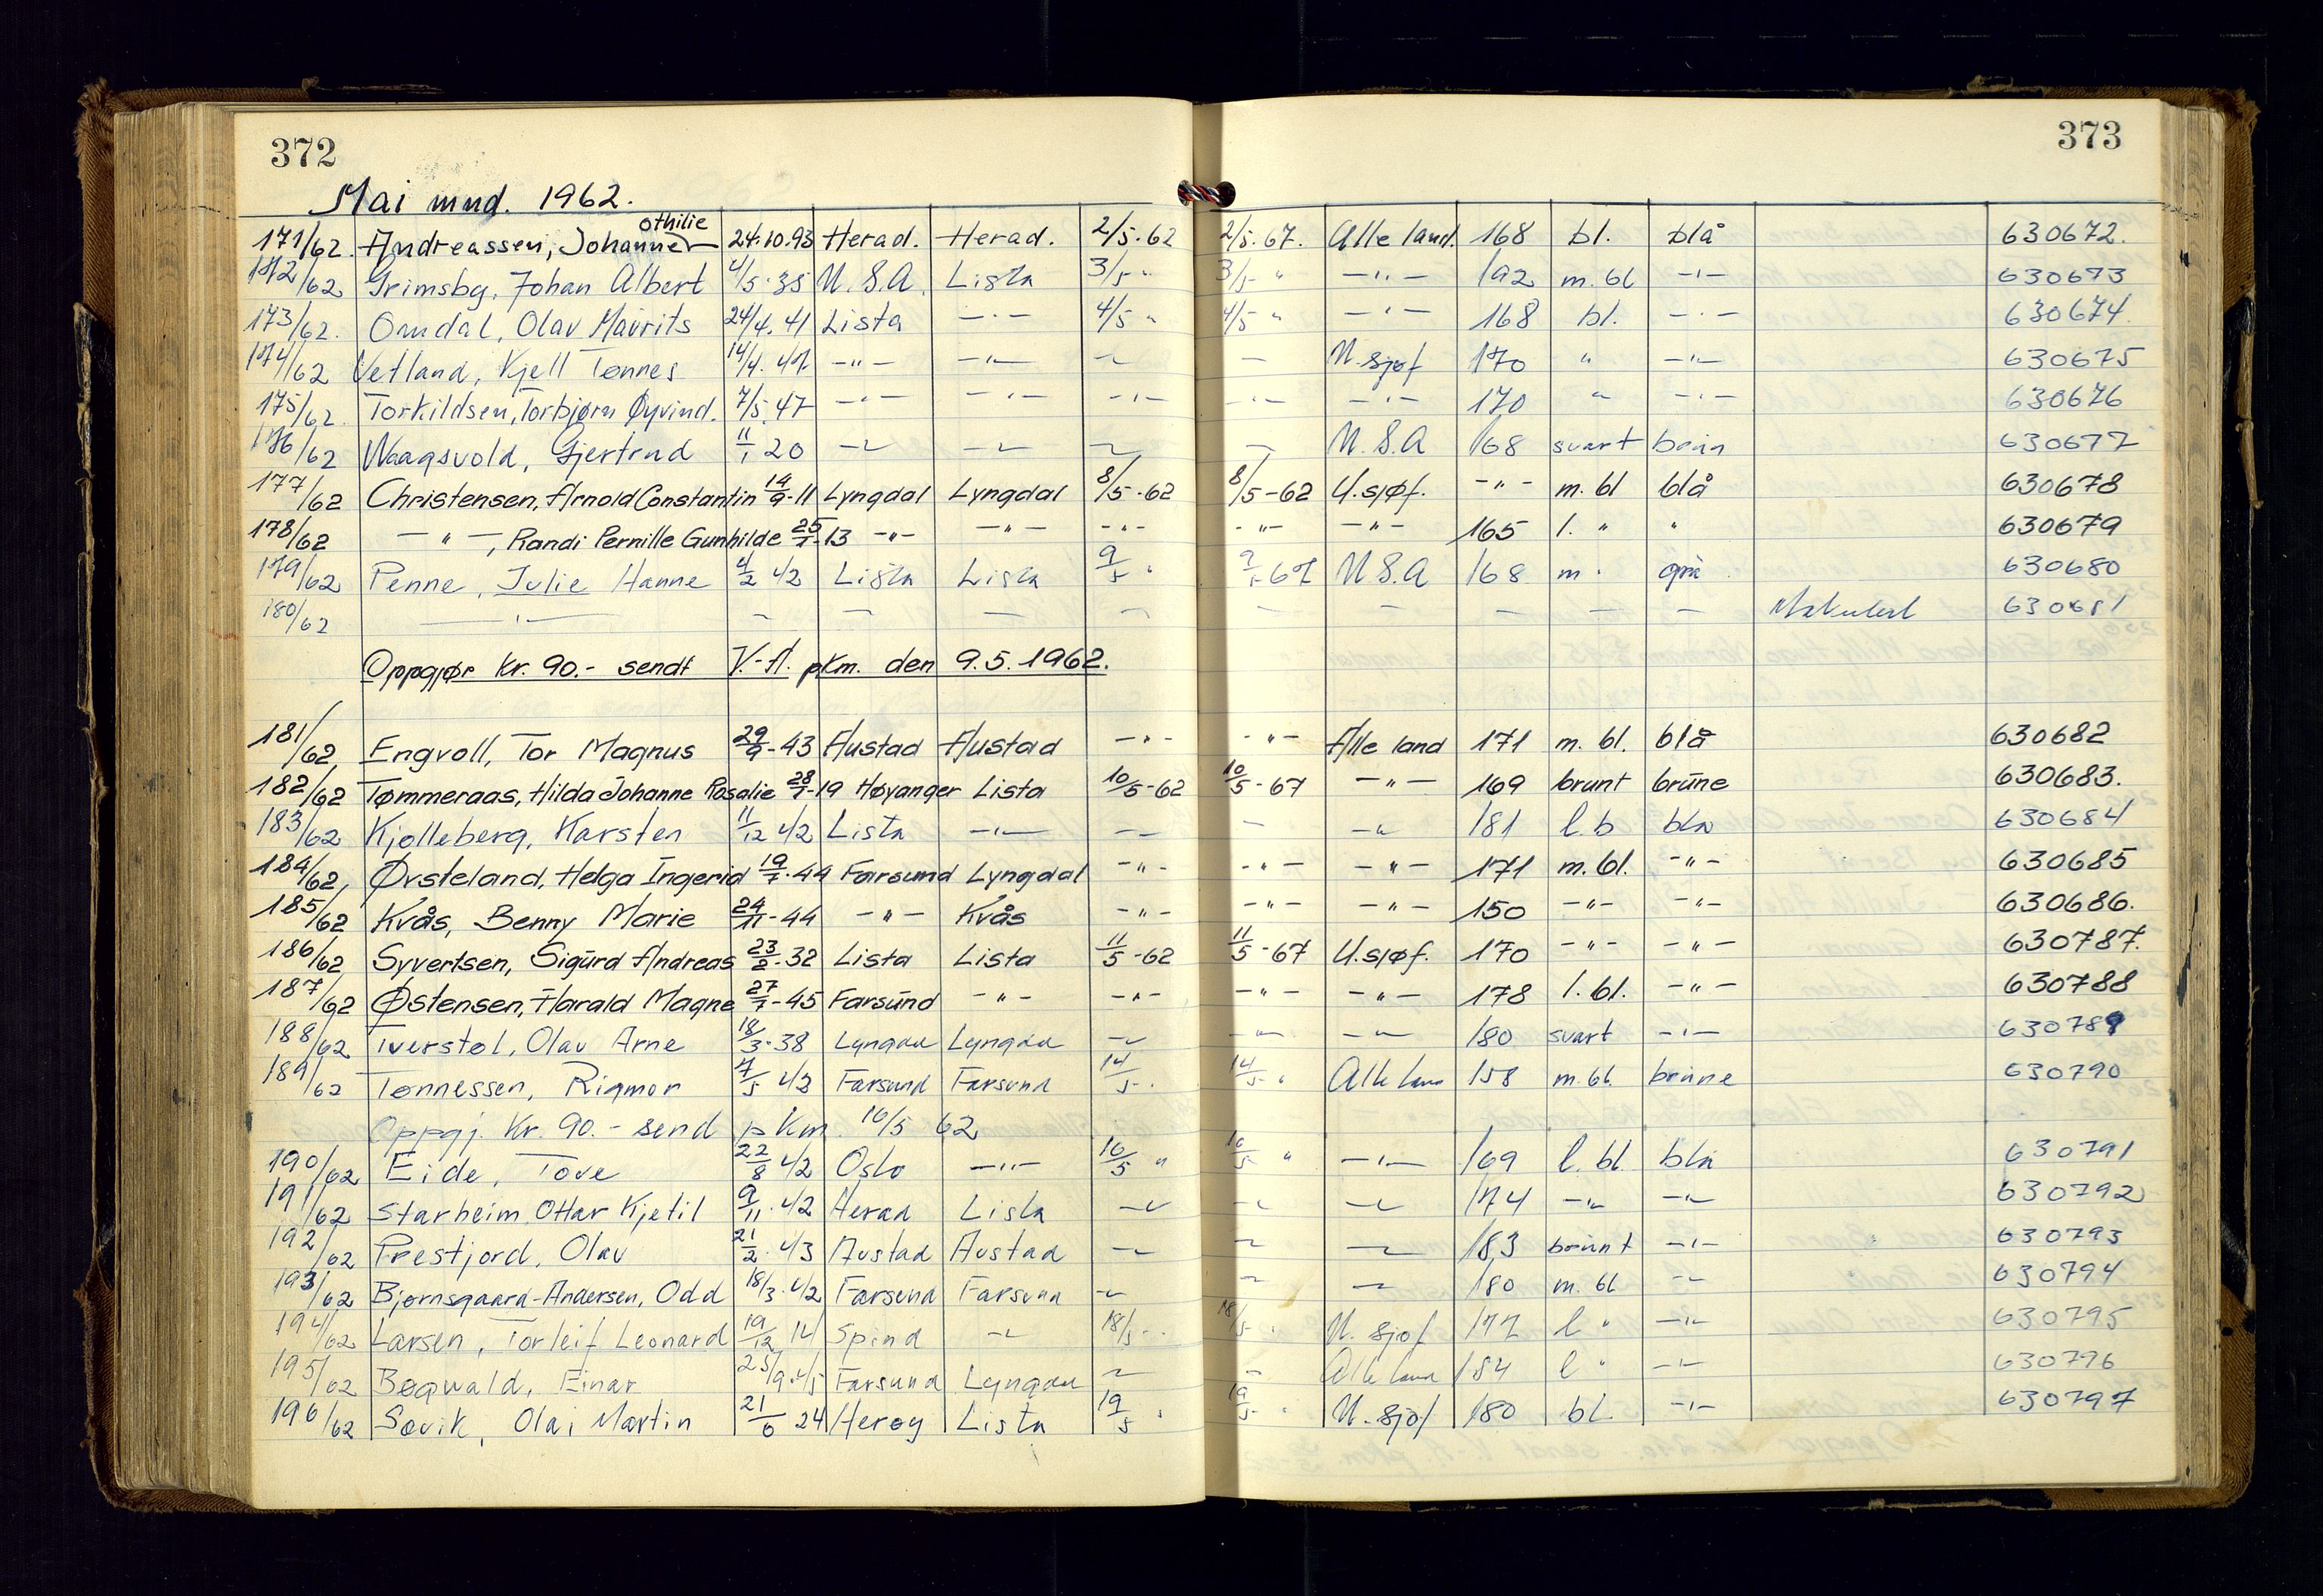 372
373
Mai mnd. 1962.
othilie
171/62. Andreassen, Johanne 24.10.93 Herad. Herad. 2/5.62 2/5.67. Alle land. 168 bl. blå 630672.
172/62 Grimsby, Johan Albert 4/5.35 U.S.A. Lista 3/5 " 3/5 " -"- 192 m. bl -"- 630673
173/62. Omdal, Olav Maurits 24/4.41 Lista -"- 4/5 " 4/5 " -"- 168 bl. -"- 630674.
174/62 Vetland, Kjell Tønnes 14/4.47 -"- -"- -"- -"- U.sjøf 170 " -"- 630675
175/62. Torkildsen, Torbjørn Øyvind. 7/5.47 -"- -"- -"- -"- -"- 170 " -"- 630676
176/62 Waagsvold, Gjertrud 11/1 20 -"- -"- -"- -"- U.S.A 168 svart brún 630677
177/62 Christensen, Arnold Constantin 14/9-11 Lyngdal Lyngdal 8/5-62 8/5-62 U.sjøf. -"- m. bl blå 630678
178/62 -"-, Randi Pernille Gunhilde 25/1-13 -"- -"- -"- -"- -"- 165 l. " " 630679
179/62 Penne, Julie Hanne 4/2 42 Lista Lista 9/5 " 9/5 67 U.S.A 168 m " grå 630680
180/62 -"- - - - - - - - - - Makulert 630681
Oppgjør kr. 90.- sendt V.-A. pkm. den 9.5.1962.
181/62, Engvoll, Tor Magnus 29/9-43 Austad Austad -"- -"- Alle land 171 m. bl. blå 630682
182/62 Tømmeraas, Hilda Johanne Rosalie 28/1-19 Høyanger Lista 10/5-62 10/5-67 -"- 169 brunt brúne 630683.
183/62 Kjølleberg, Karsten 11/12 42 Lista -"- -"- - -"- 181 l. b blå 630684
184/62, Ørsteland, Helga Ingerid 19/7-44 Farsund Lyngdal -"- -"- -"- 171 m. bl. -"- 630685
185/62 Kvås, Benny Marie 24/11-44 -"- Kvås -"- -"- -"- 150 -"- -"- 630686.
186/62 Syvertsen, Sigúrd Andreas 23/2-32 Lista Lista 11/5-62 11/5-67 U.sjøf. 170 -"- -"- 630787.
187/62 Østensen, Harald Magne 27/7-45 Farsúnd -"- -"- -"- -"- 178 l. bl. -"- 630788
188/62 Tverstøl, Olav Arne 18/3.38 Lyngdal Lyngdal -"- -"- -"- 180 svart -"- 630789
189/62 Tønnessen, Rigmor 7/5 42 Farsund Farsund 14/5 " 14/5 " Alle land 158 m. bl. brúne 630790
Oppgj. Kr. 90.- send pKm. 16/5 62
190/62 Eide, Tove 22/8 42 Oslo -"- 16/5 " 16/5 " -"- 169 l. bl. blå 630791
191/62 Starheim, Ottar Kjetil 9/11.42 Herad Lista -"- -"- -"- 174 -"- -"- 630792
192/62 Prestjord, Olav 21/2.43 Austad Austad -"- -"- -"- 183 brúnt -"- 630793
193/62 Bjørnsgaard-Andersen, Odd 18/3.42 Farsund Farsund -"- -"- -"- 180 m. bl -"- 630794
194/62 Larsen, Torleif Leonard 19/12 14 Spind -"- 18/5 " 18/5 " U. sjøf 177 l " -"- 630795
195/62 Bøqwald, Einar 25/9.45 Farsund Lyngdal -"- -"- Alle land 184 l " -"- 630796
196/62 Søvik, Olai Martin 21/6 24 Herøy Lista 19/5 " 19/5 " U. sjøf 180 bl. -"- 630797